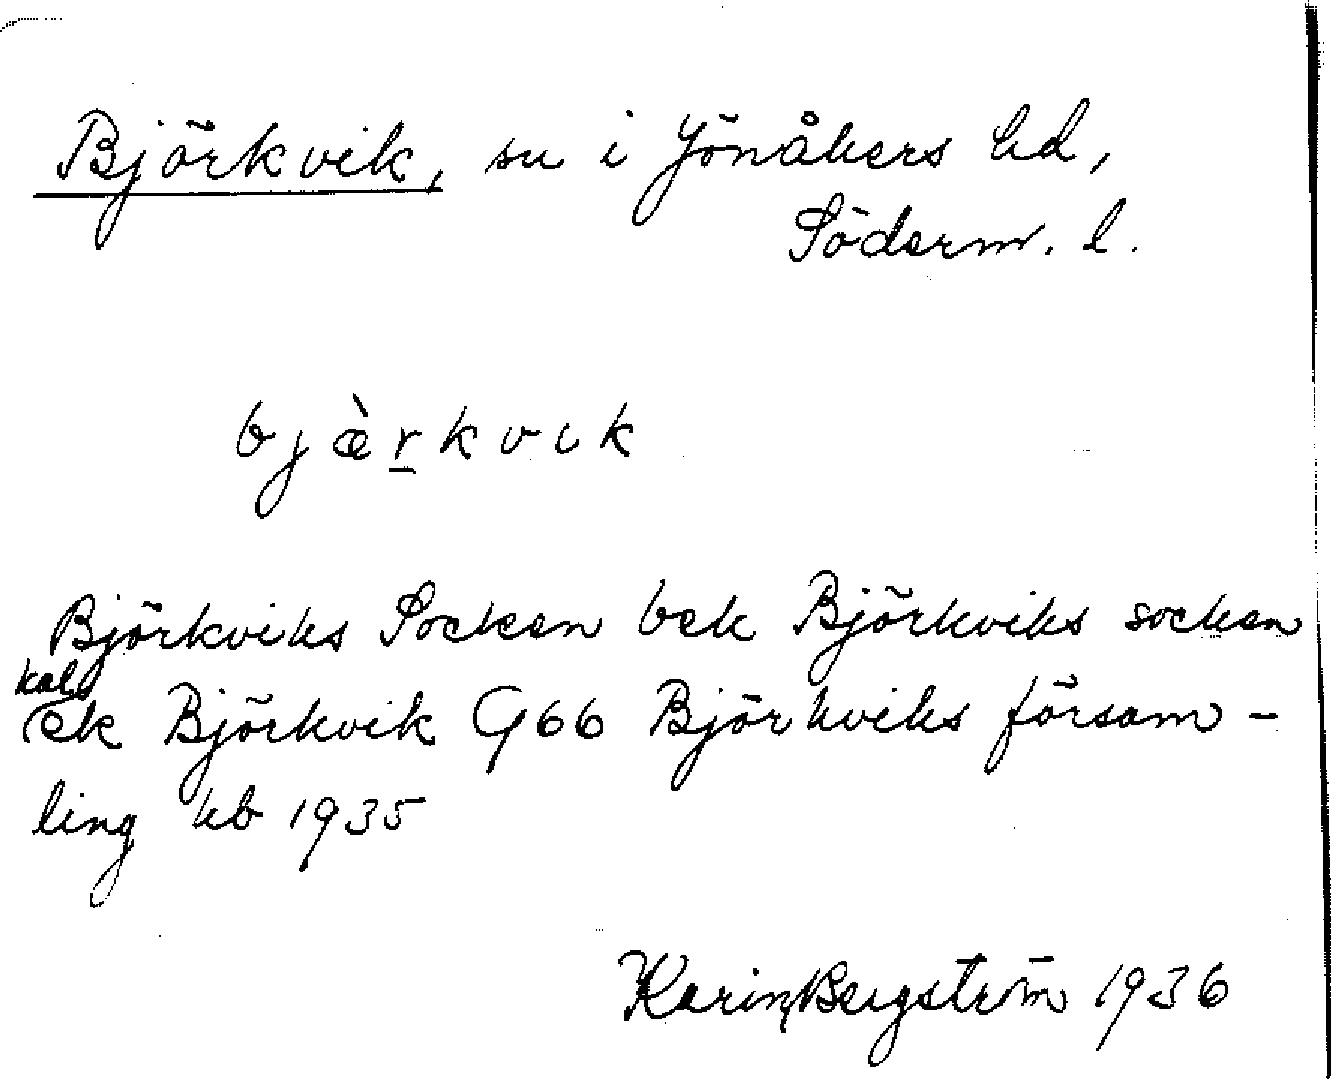 Björkvik, sn i Jönåkers hd,
Söderm. l.
bjæ̀r̲kvik
Björkviks Socken bek Björkviks socken
kal
ek Björkvik G66 Björkviks försam-
ling kb 1935
Karin Bergström 1936